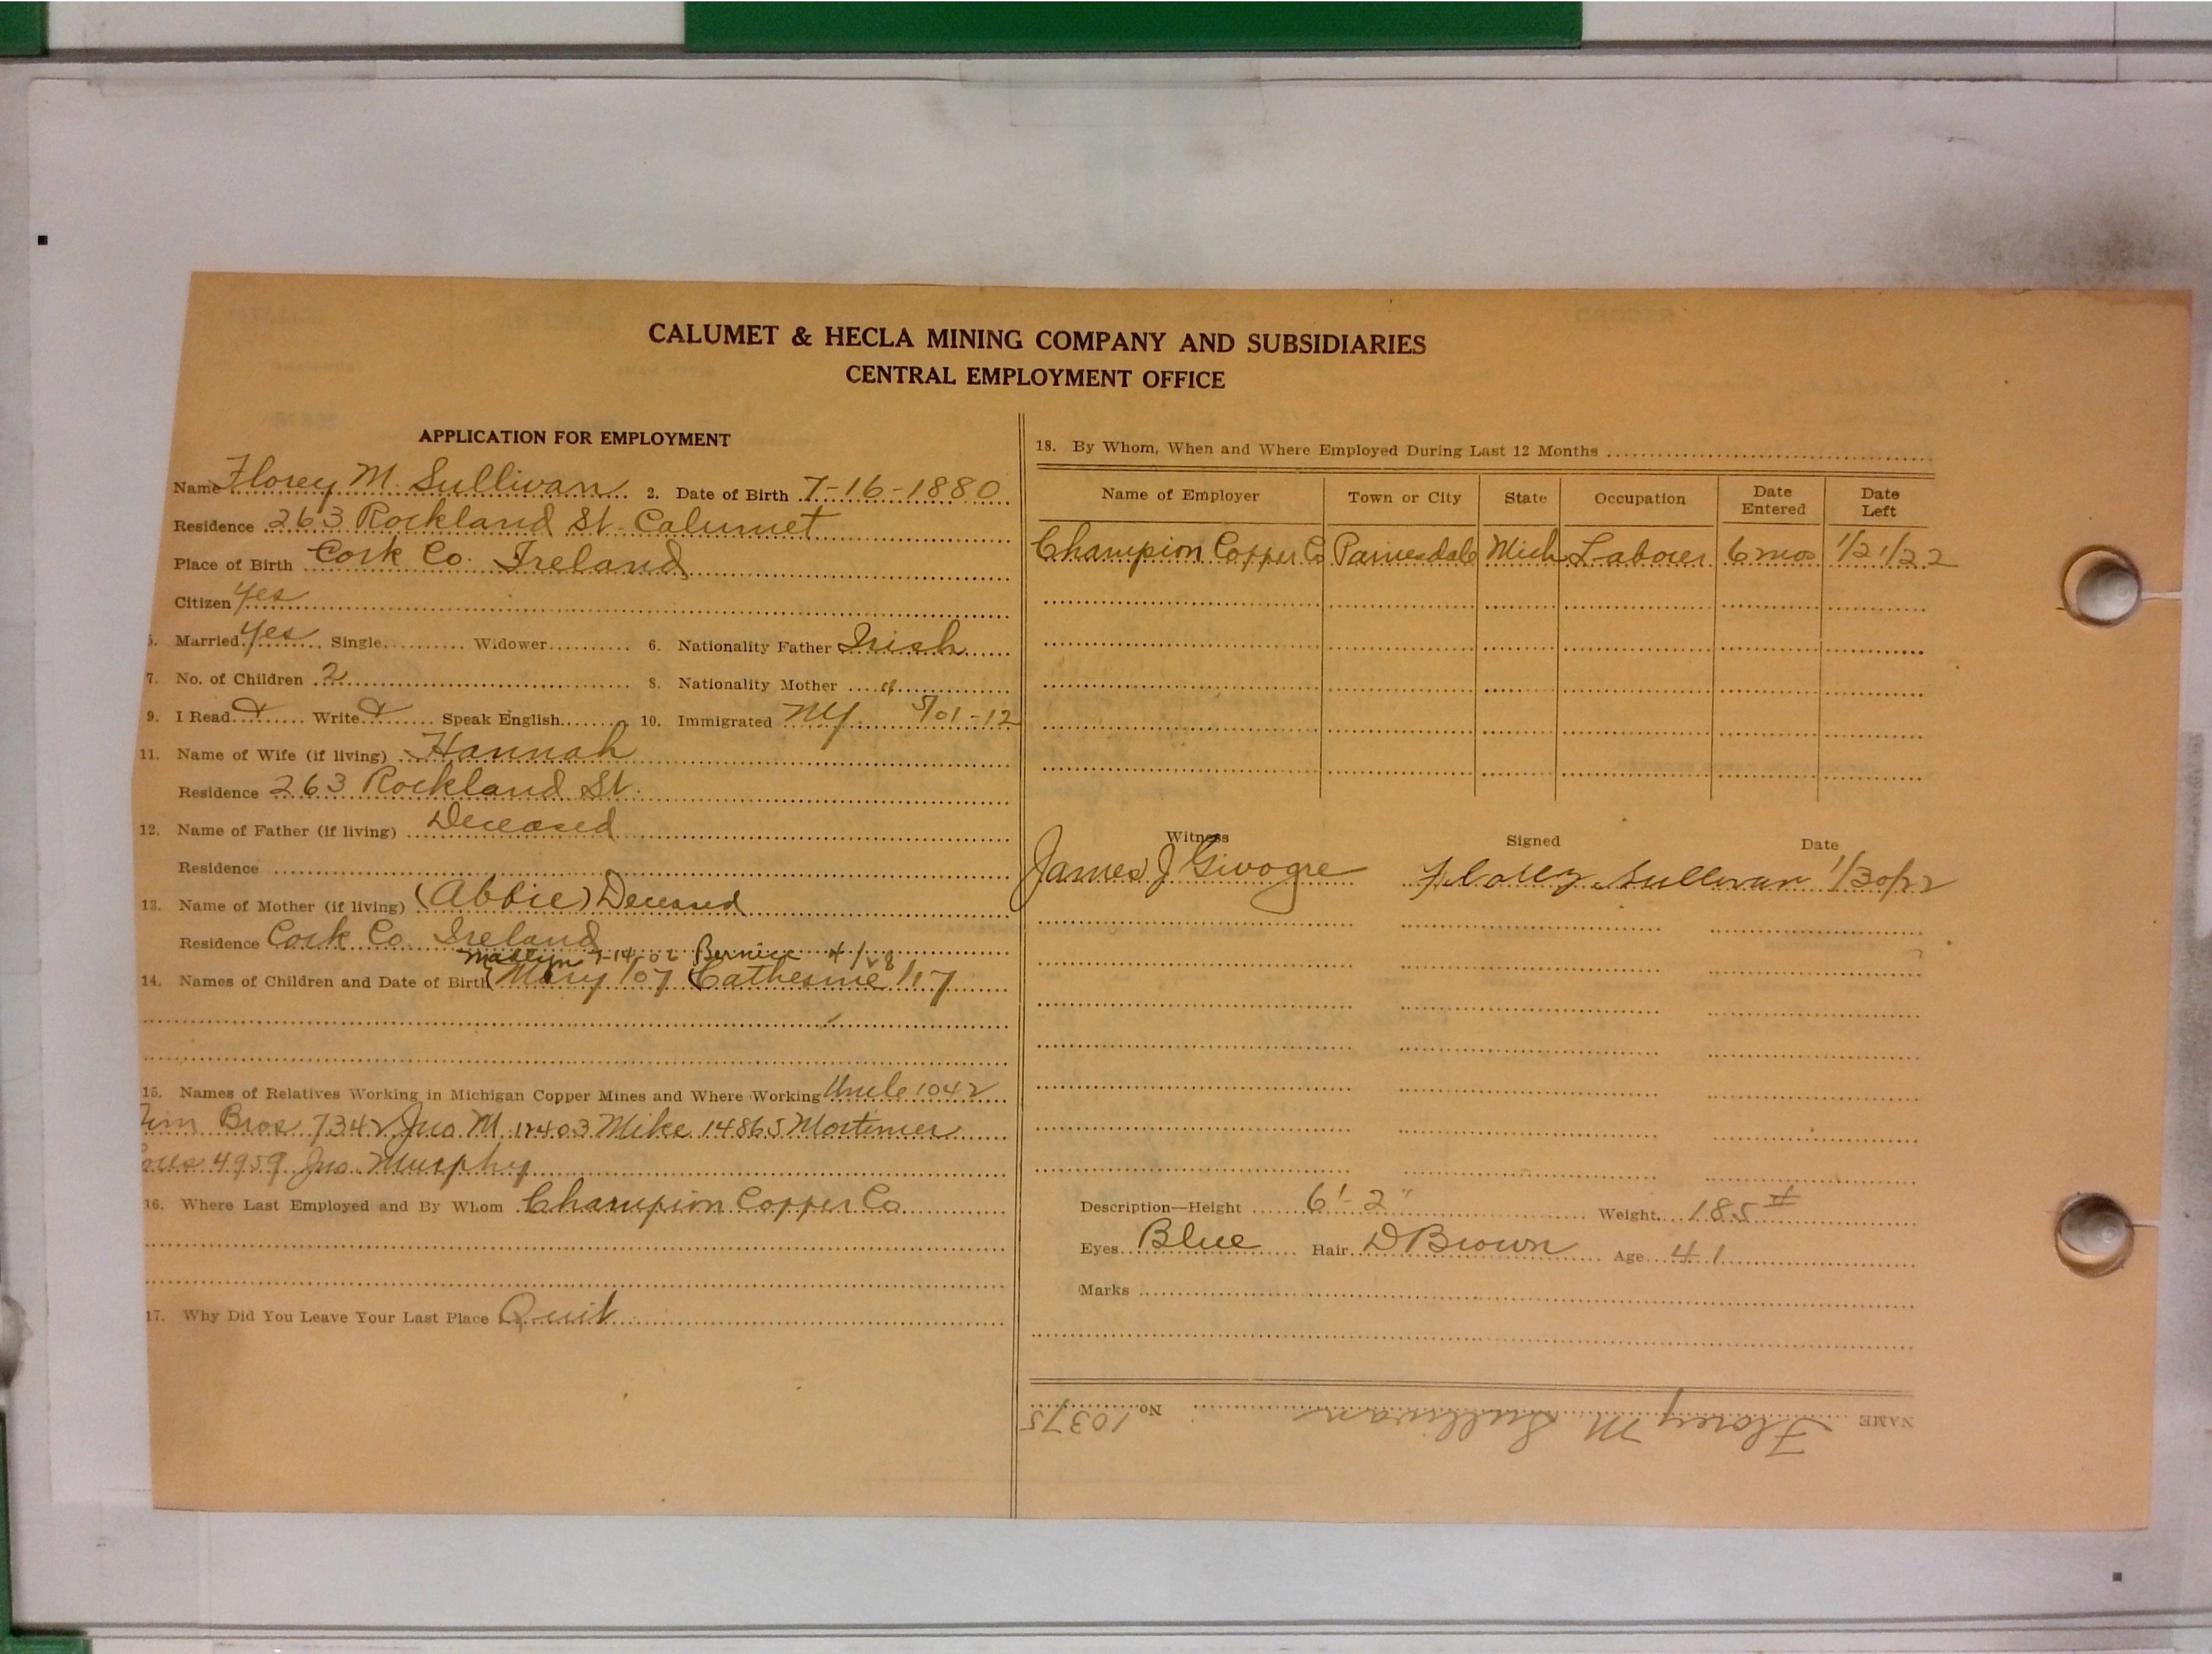 CALUMET & HECLA MINING COMPANY AND SUBSIDIARIES
CENTRAL EMPLOYMENT OFFICE
APPLICATION FOR EMPLOYMENT
Name Florey M. Sullivan 2. Date of Birth 7-16-1880
Residence 263 Rockland St. Calumet
Place of Birth Cork Co. Ireland
Citizen Yes
5. Married Yes Single Widower 6. Nationality Father Irish
7. No. of Children 2 8. Nationality Mother "
9. I Read Write Speak English 10. Immigrated NY 5/01-12
11. Name of Wife (if living) Hannah
Residence 263 Rockland St.
12. Name of Father (if living) Deceased
Residence
13. Name of Mother (if living) (Abbie) Deceased
Residence Cork Co. Ireland
7-14-06 Bernice 4/18
14. Names of Children and Date of Birth Mary /07 Catherine /17
15. Names of Relatives Working in Michigan Copper Mines and Where Working Uncle 1042
Tim Bros 7342 Jno. M. 12403 Mike 14865 Mortimer
4959 Jno. Murphy
16. Where Last Employed and By Whom Champion Copper Co
17. Why Did You Leave Your Last Place Quit
18. By Whom, When and Where Employed During Last 12 Months
Name of Employer Town or City State Occupation Date Entered Date Left
Champion Copper Co Painesdale Mich Laborer 6 mos 1/21/22
Witness Signed Date
James J Givogre Florey Sullivan 1/30/22
Description—Height 6'-2" Weight 185#
Eyes Blue Hair D Brown Age 41
Marks
NAME Florey M Sullivan No. 10375